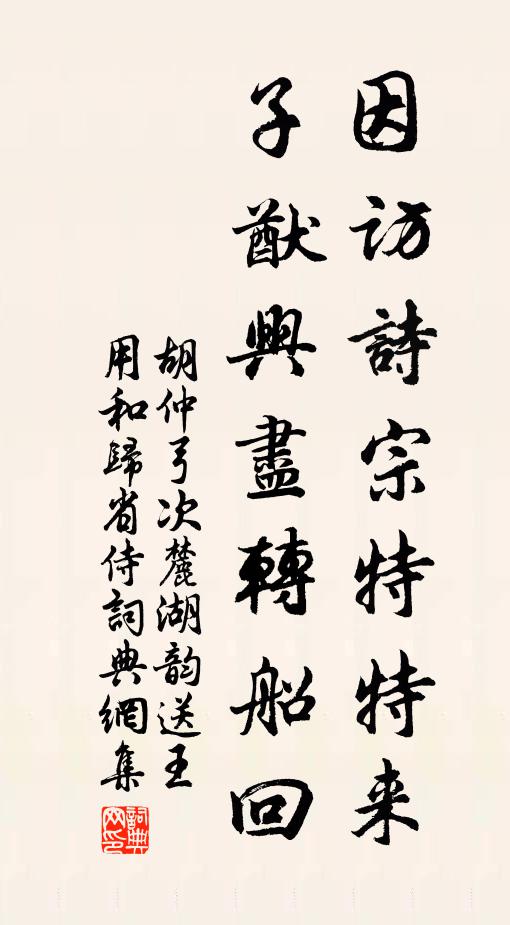 因访詩宗特特来
子猷興盡轉船回
胡仲弓次麓湖韵送王
用和歸省侍詞典網集
詞典
网印